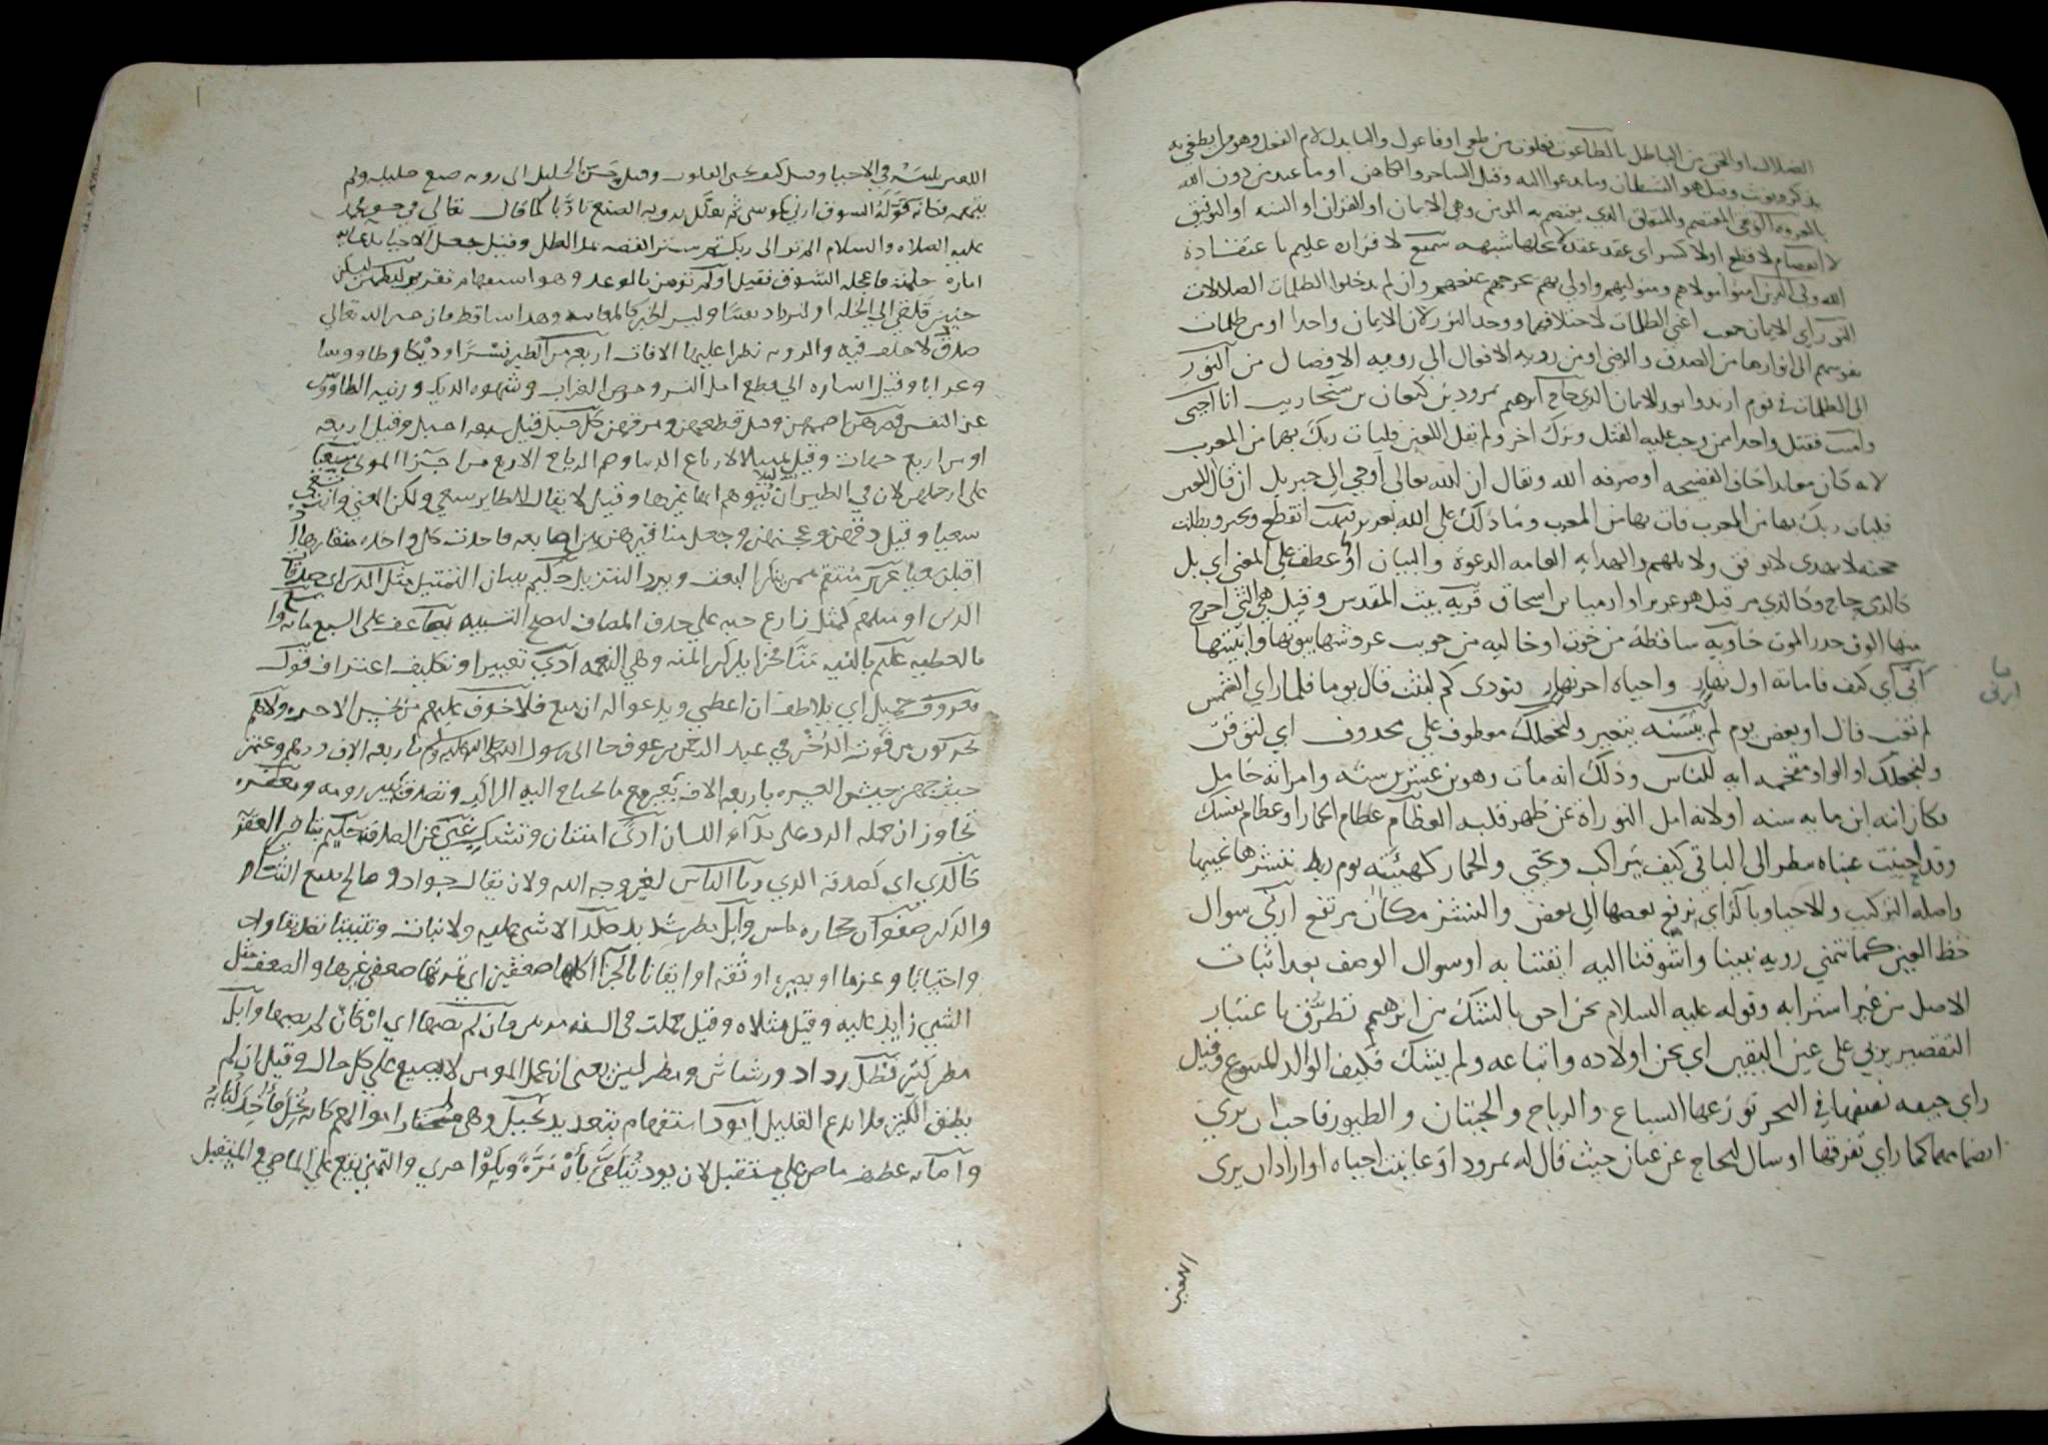 الضلالة او الحق من الباطل بالطاغوت فعلوت من طغى او فاعول والتا بدل لام الفعل وهو من يطغي به
يذكر ويونث وقيل هو الشيطان وما يدعوا اليه وقيل الساحر والكاهن او ما عبد من دون الله
بالعروة الوثقى المعتصم والمتعلق الذي يعتصم به المومن وهي الايمان او القران او السنة او التوفيق
لا انفصام لا قطع او لا كسر اي عقد عقدا لا تحلها شبهه سميع لاقرار عليم باعتقاده
الله ولي الذين امنوا مولاهم ومتوليهم واولى بهم يخرجهم يمنعهم وان لم يدخلوا الظلمات الضلالات
النور اي الايمان جمع اعني الظلمات لاختلافها ووحد النور لان الايمان واحد او من ظلمات
نفوسهم الى انوارها من الصدق والرضى او من روية الافعال الى روية الافضال من النور
الى الظلمات في قوم ارتدوا بعد الايمان الذي حاج ابرهيم نمرود بن كنعان بن سنحاريب انا احيي
واميت فقتل واحدا ممن وجب عليه القتل وترك اخر ولم يقل اللعين فليات ربك بها من المغرب
لانه كان معاندا خاف الفضيحه او صرفه الله ويقال ان الله تعالى اوحى الى جبريل ان قال اللعين
فليات ربك بها من المغرب فات بها من المغرب وما ذلك على الله بعزيز فبهت انقطع وتحير وبطلت
حجته لا يهدي لا يوفق ولا يلهم والهدايه العامه الدعوة والبيان او عطف على المعنى اي بل
كالذي حاج وكالذي مر قيل هو عزير او ارميا بن اسحاق قرية بيت المقدس وقيل هي التي اخرج
منها الوف حذر الموت خاويه ساقطة من خوى او خاليه من خويت عروشها بيوتها وابنيتها
انى اي كيف فاماته اول نهار واحياه اخر نهار فنودي كم لبثت قال يوما فلما راي الشمس
لم تغب قال او بعض يوم لم يتسنه يتغير ولنجعلك معطوف على محذوف اي لتوقن
ولنجعلك او الواو مقحمه ايه للناس وذلك انه مات وهو بن عشرين سنه وامراته حامل
فكان ابنه ابن مايه سنه او لانه امل التوراة عن ظهر قلبه العظام عظام الحمار او عظام نفسك
وقد احييت عيناه ينظر الى الباقي كيف يتراكب ويحيى والحمار كهيئته يوم ربط ننشزها نغيبها
واصله التركيب وللاحيا وبالزاي نرفع بعضها الى بعض والنشز مكان مرتفع ارني سوال
حظ العين كما تتمني روية نبينا واشوقنا اليه ايقنتا به او سوال الوصف بعد اثبات
الاصل من غير استرابه وقوله عليه السلام نحن احق بالشك من ابرهيم تطرق باعتبار
التقصير يزيي على عين اليقين اي نحن اولاده واتباعه ولم نشك فكيف الوالد المتبوع وقيل
راي جيفه نصفها في البحر توزعها السباع والرياح والحيتان والطيور فاحب ان يري
انضمامها كما راي تفرقها او سال لحجاج عن عيان حيث قال له نمرود او عاينت احياه او اراد ان يرى
ما
ارني
اللعين
اللعين تلبيسه في الاحيا وقيل كيف تحيى القلوب وقيل حسن الخليل الى روية صنع خليله ولم
يتهمه فكانه قوله الشوق ارني كموسى ثم تعلل بروية الصنع تادبا كما قال تعالى في حق محمد
عليه الصلاة والسلام الم تر الى ربك ثم ستر القصه بمد الظل وقيل جعل الاحيا بدعايه
امارة خلته فاعجله الشوق فقيل اولم تومن بالوعد وهو استفهام تقرير ليطمئن ليسكن
حنين قلبي الى الخلة او ليزداد يقينا وليس الخبر كالمعاينه وهذا ساقط فان خبر الله تعالى
صدق لا خلف فيه والرويه نظرا عليها الافات اربعة من الطير نسرا او ديكا وطاووسا
وغرابا وقيل اشاره الى قطع امل النسر وحرص الغراب وشهوه الديك وزينه الطاووس
عن النفس فصرهن اضممهن وقيل قطعهن ومزقهن كل جبل قيل سبعه اجبل وقيل اربعه
او من اربع جهات وقيل تمثيلا لارباع الدنيا وهم الرياح الاربع من اجزا الموتى سعيا
على ارجلهن لان في الطيران يتوهم انها غيرها وقيل لا يقال للطاير سعي ولكن المعنى وانت تسعى
سعيا وقيل دقهن وعجنهن وجعل مناقيرهن بين اصابعه فاخذت كل واحده منقارها اذا
اقبلن عيا عزيز منتقم ممن ينكر البعث ويرد التنزيل حكيم ببيان التمثيل مثل الذين اي صدقات
الذين او مثلهم كمثل زارع حبه على حذف المضاف ليصح التشبيه يضاعف على السبع مائه واسع
بالعطيه عليم بالنيه منا فخرا بذكر المنه وهي النعمه اذى تعييرا وتكليف اعتراف قول
معروف جميل اي يلاطف ان اعطى ويدعوا له ان منع فلا خوف عليهم من بخس الاجر ولا هم
يحزنون من فوت الذخر في عبد الرحمن بن عوف جا الى رسول الله صلى الله عليه وسلم باربعه الاف درهم وعثمن
حين جهز جيش العسره باربعه الاف بعير مع ما يحتاج اليه الراكب وتصدق ببير رومه ومغفره
تجاوز ان حمله الرد على بذاة اللسان اذى امتنان وتشك غني عن الصدقه حكيم بتاخير العقوبة
كالذي اي كصدقه الذي رئا الناس لغير وجه الله ولان يقال جواد وصالح يدع الثنا
والذكر صفوان حجاره ملس وابل مطر شديد صلدا لا شي عليه ولا نبات وتثبيتا تصديقا
واحتسابا وعزما او بصيرة او ثقه او ايقانا بالجزا اكلها ضعفين اي ثمرتها ضعفي غيرها والضعف مثل
الشي زايد عليه وقيل مثلاه وقيل حملت في السنه مرتين فان لم يصبها اي ان كان لم يصبها وابل
مطر كثير فطل رذاذ ورشاش ومطر لين يعني ان عمل المومن لا يضيع على كل حال وقيل ان لم
يطق الكثير فلا يدع القليل ايود استفهام بتعديد نخيل وهي اموالهم كانه نخل ماخذ لبابه
واصابه عطف ماض على مستقبل لان يود يتلقى بان مره وبلو اخرى والتمني يقع على الماضي والمستقبل